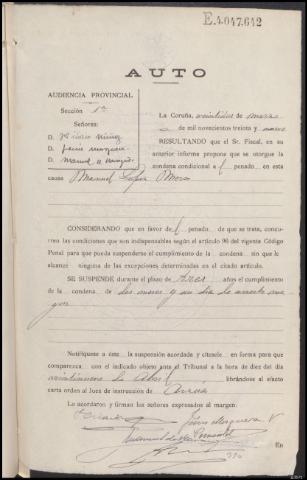 E.4.047.642
AUTO
AUDIENCIA PROVINCIAL
Sección 1ª
Señores:
D.
D.
D. Manuel
La Coruña, veintidos de marzo
de mil novecientos treinta y nueve
RESULTANDO que el Sr. Fiscal, en su
anterior informe propone que se otorgue la
condena condicional a l penado en esta
causa Manuel López Mora
CONSIDERANDO que en favor de l penado de que se trata, concu-
rren las condiciones que son indispensables según el artículo 96 del vigente Código
Penal para que pueda suspenderse el cumplimiento de la condena sin que le
alcance ninguna de las excepciones determinadas en el citado artículo.
SE SUSPENDE durante el plazo de tres años el cumplimiento
de la condena de dos meses y un día de arresto ma
yor
Notifíquese a éste la suspensión acordada y cítesele en forma para que
comparezca con el indicado objeto ante el Tribunal a la hora de diez del día
de Abril librándose al efecto
carta orden al Juez de instrucción de
Lo acordaron y firman los señores expresados al margen:
En